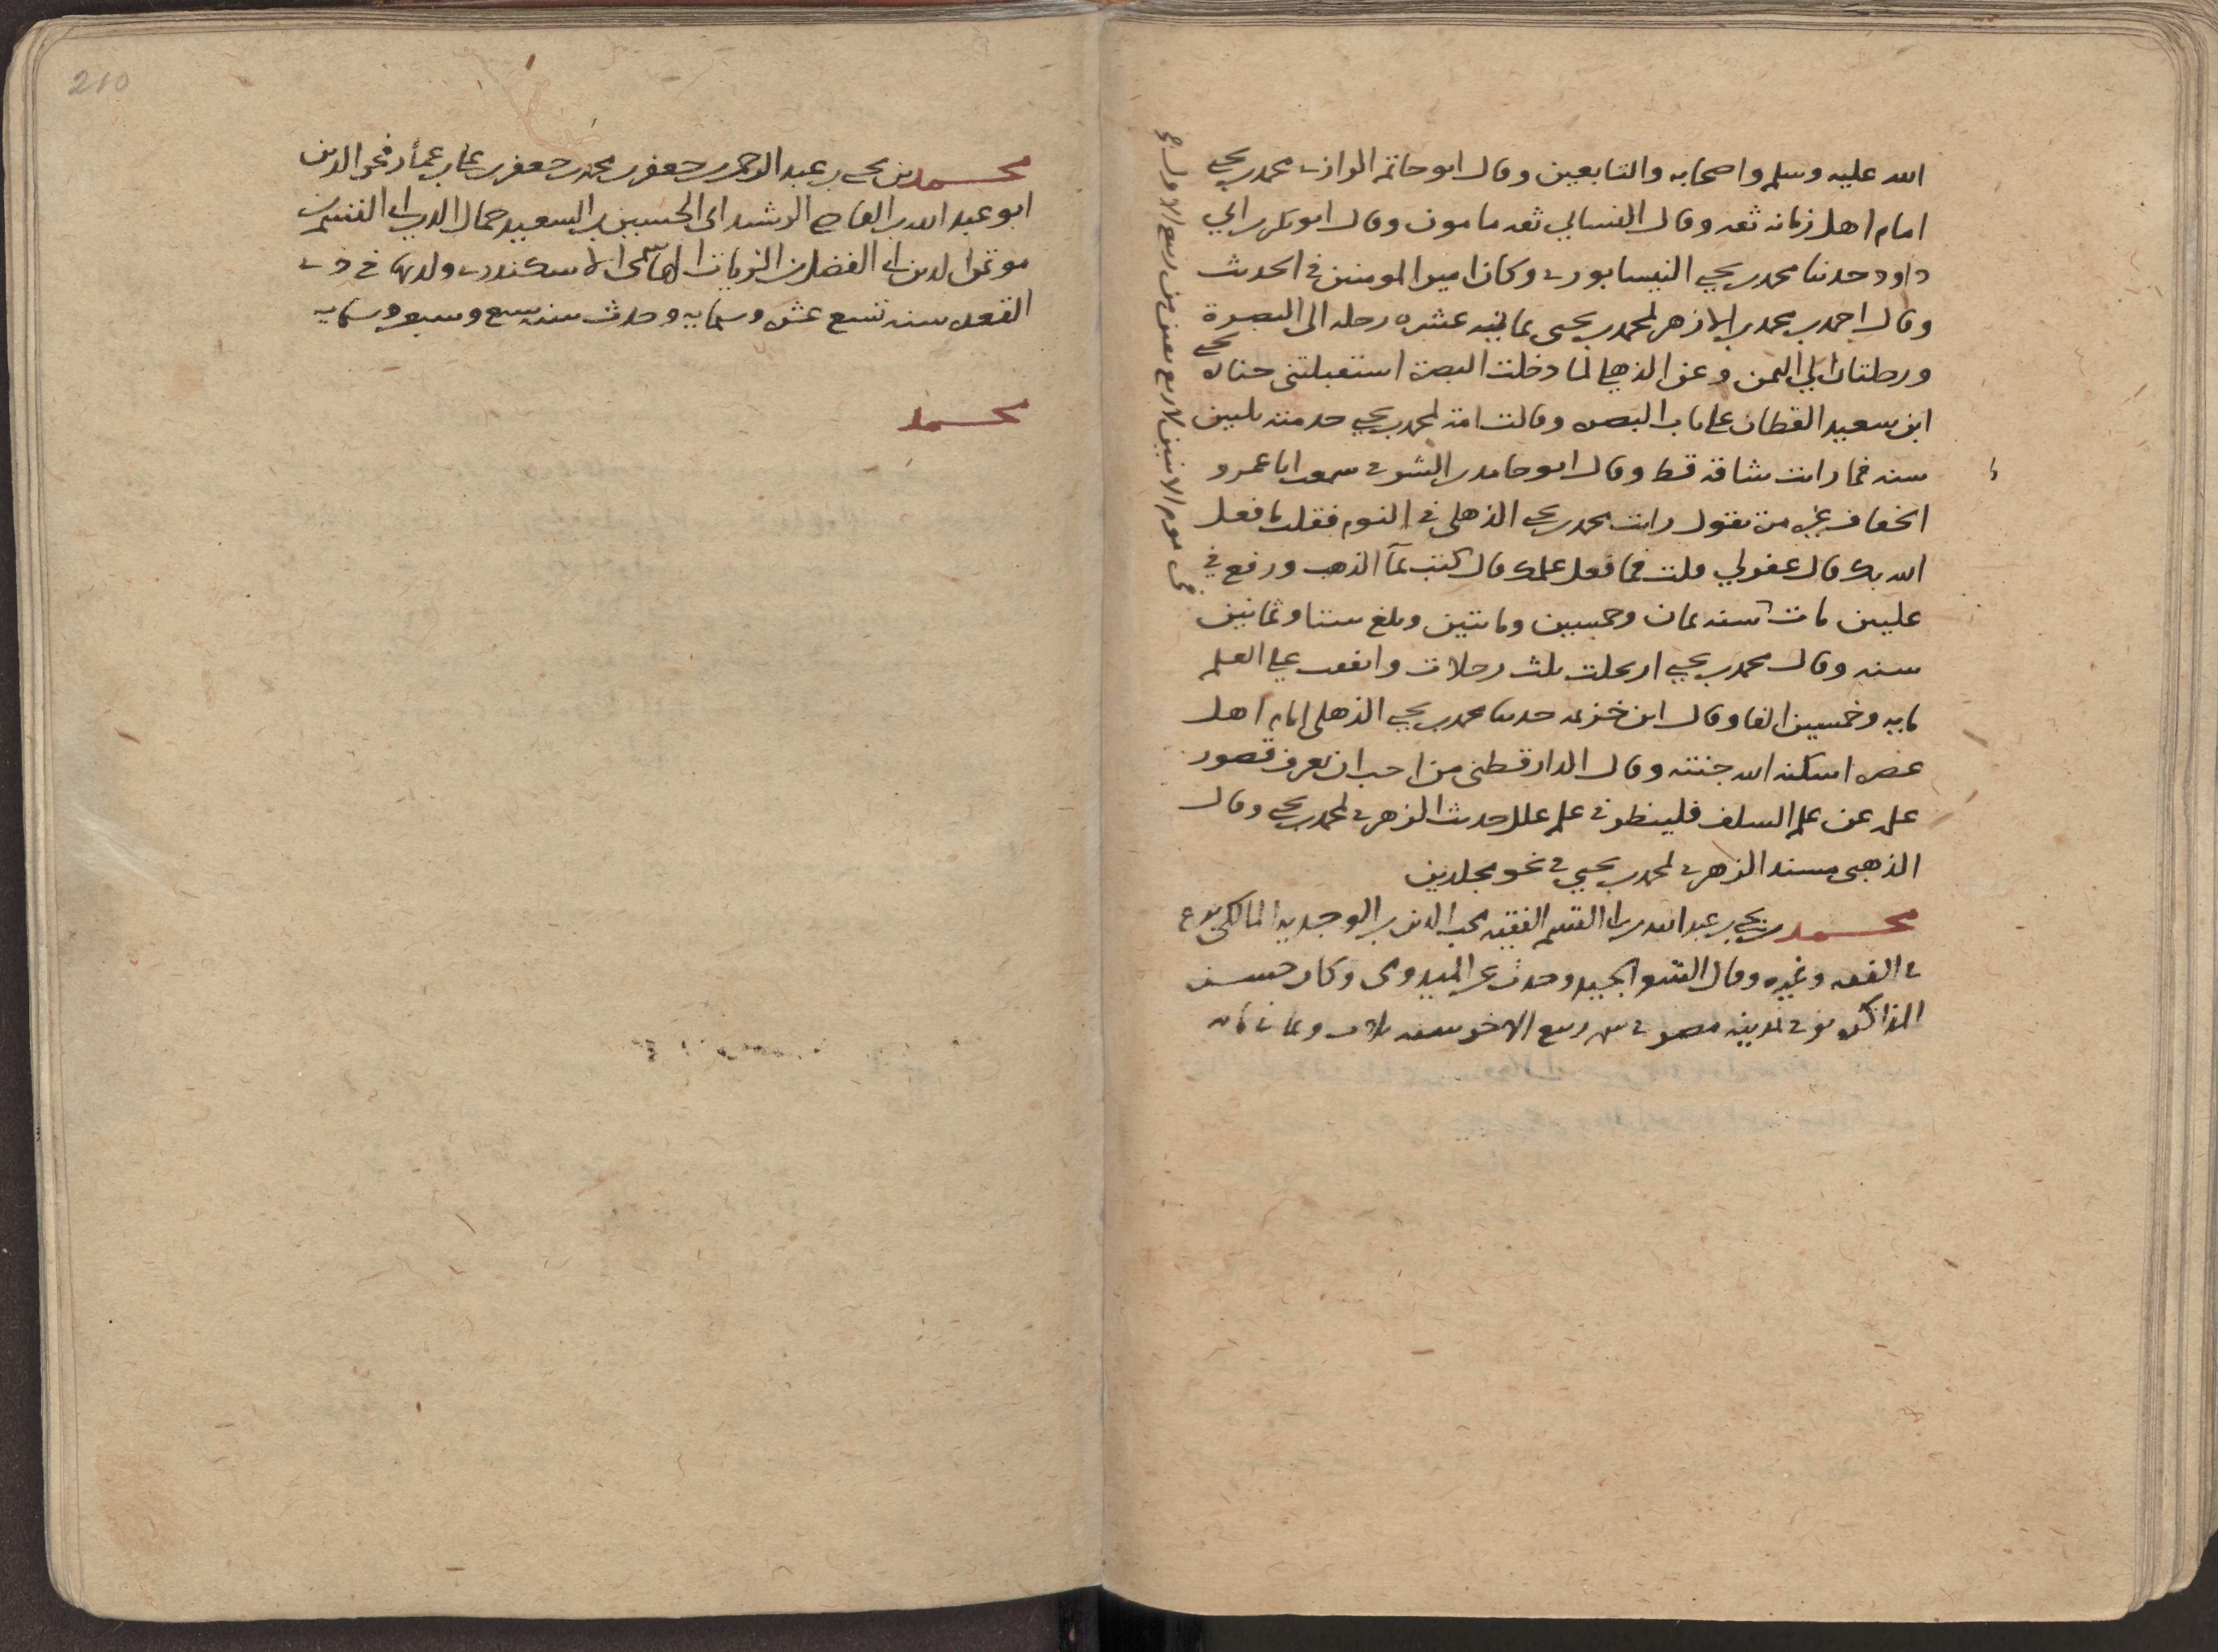 الله عليه وسلم واصحابه والتابعين وقال ابو حاتم الرازى محمد بن يحيى
امام اهل زمانه ثقه وقال النسائي ثقه مامون وقال ابو بكر بن ابي
داود حدثنا محمد بن يحيى النيسابورى وكان امير المومنين في الحديث
وقال احمد بن محمد بن الازهر لمحمد بن يحيى ثمانيه عشره رحله الى البصرة
ورحلتان الي اليمن وعن الذهلي لما دخلت البصرة استقبلتني جنازه يحيى
ابن سعيد القطان على باب البصره وقالت امة لمحمد بن يحيى خدمته ثلثين
سنه فما رايت ساقه قط وقال ابو حامد بن الشرقى سمعت ابا عمرو
الخفاف غير مرة يقول رايت محمد بن يحيى الذهلي في النوم فقلت ما فعل
الله بك قال غفر لي قلت فما فعل علمك قال كتب بماء الذهب ورفع في
عليين مات سنه ثمان وخمسين ومائتين وبلغ ستا وثمانين
سنه وقال محمد بن يحيى ارتحلت ثلث رحلات وانفقت على العلم
مايه وخمسين الفا وقال ابن خزيمه حدثنا محمد بن يحيى الذهلي امام اهل
عصره اسكنه الله جنته وقال الدارقطني من احب ان يعرف قصور
علمه عن علم السلف فلينظر في علم علل حديث الزهرى لمحمد بن يحيى وقال
الذهبي مسند الزهرى لمحمد بن يحيى في نحو مجلدين
محمد بن يحيى بن عبد الله بن القسم الفقيه محب الدين بن الوجديه المالكي برع
في الفقه وغيره وقال الشعر الجيد وحدث عن الميدومى وكان حسن
المذاكره توفى بمدينه مصر في ربيع الاخر سنه ثلاث وثمانمائه
في يوم الاثنين لاربع بقين من ربيع الاول
210
محمد بن يحيى بن عبد الرحمن بن جعفر بن محمد بن جعفر بن عمار فخر الدين
ابو عبد الله بن القاضي الرشيد ابي الحسين بن السعيد جمال الدين ابي القسم بن
موتمن الدين ابي الفضل بن الزيات الاسكندرى ولد بها في ذى
القعده سنه تسع عشره وستمايه وحدث سنه سبع وسبعين وستمايه
محمد